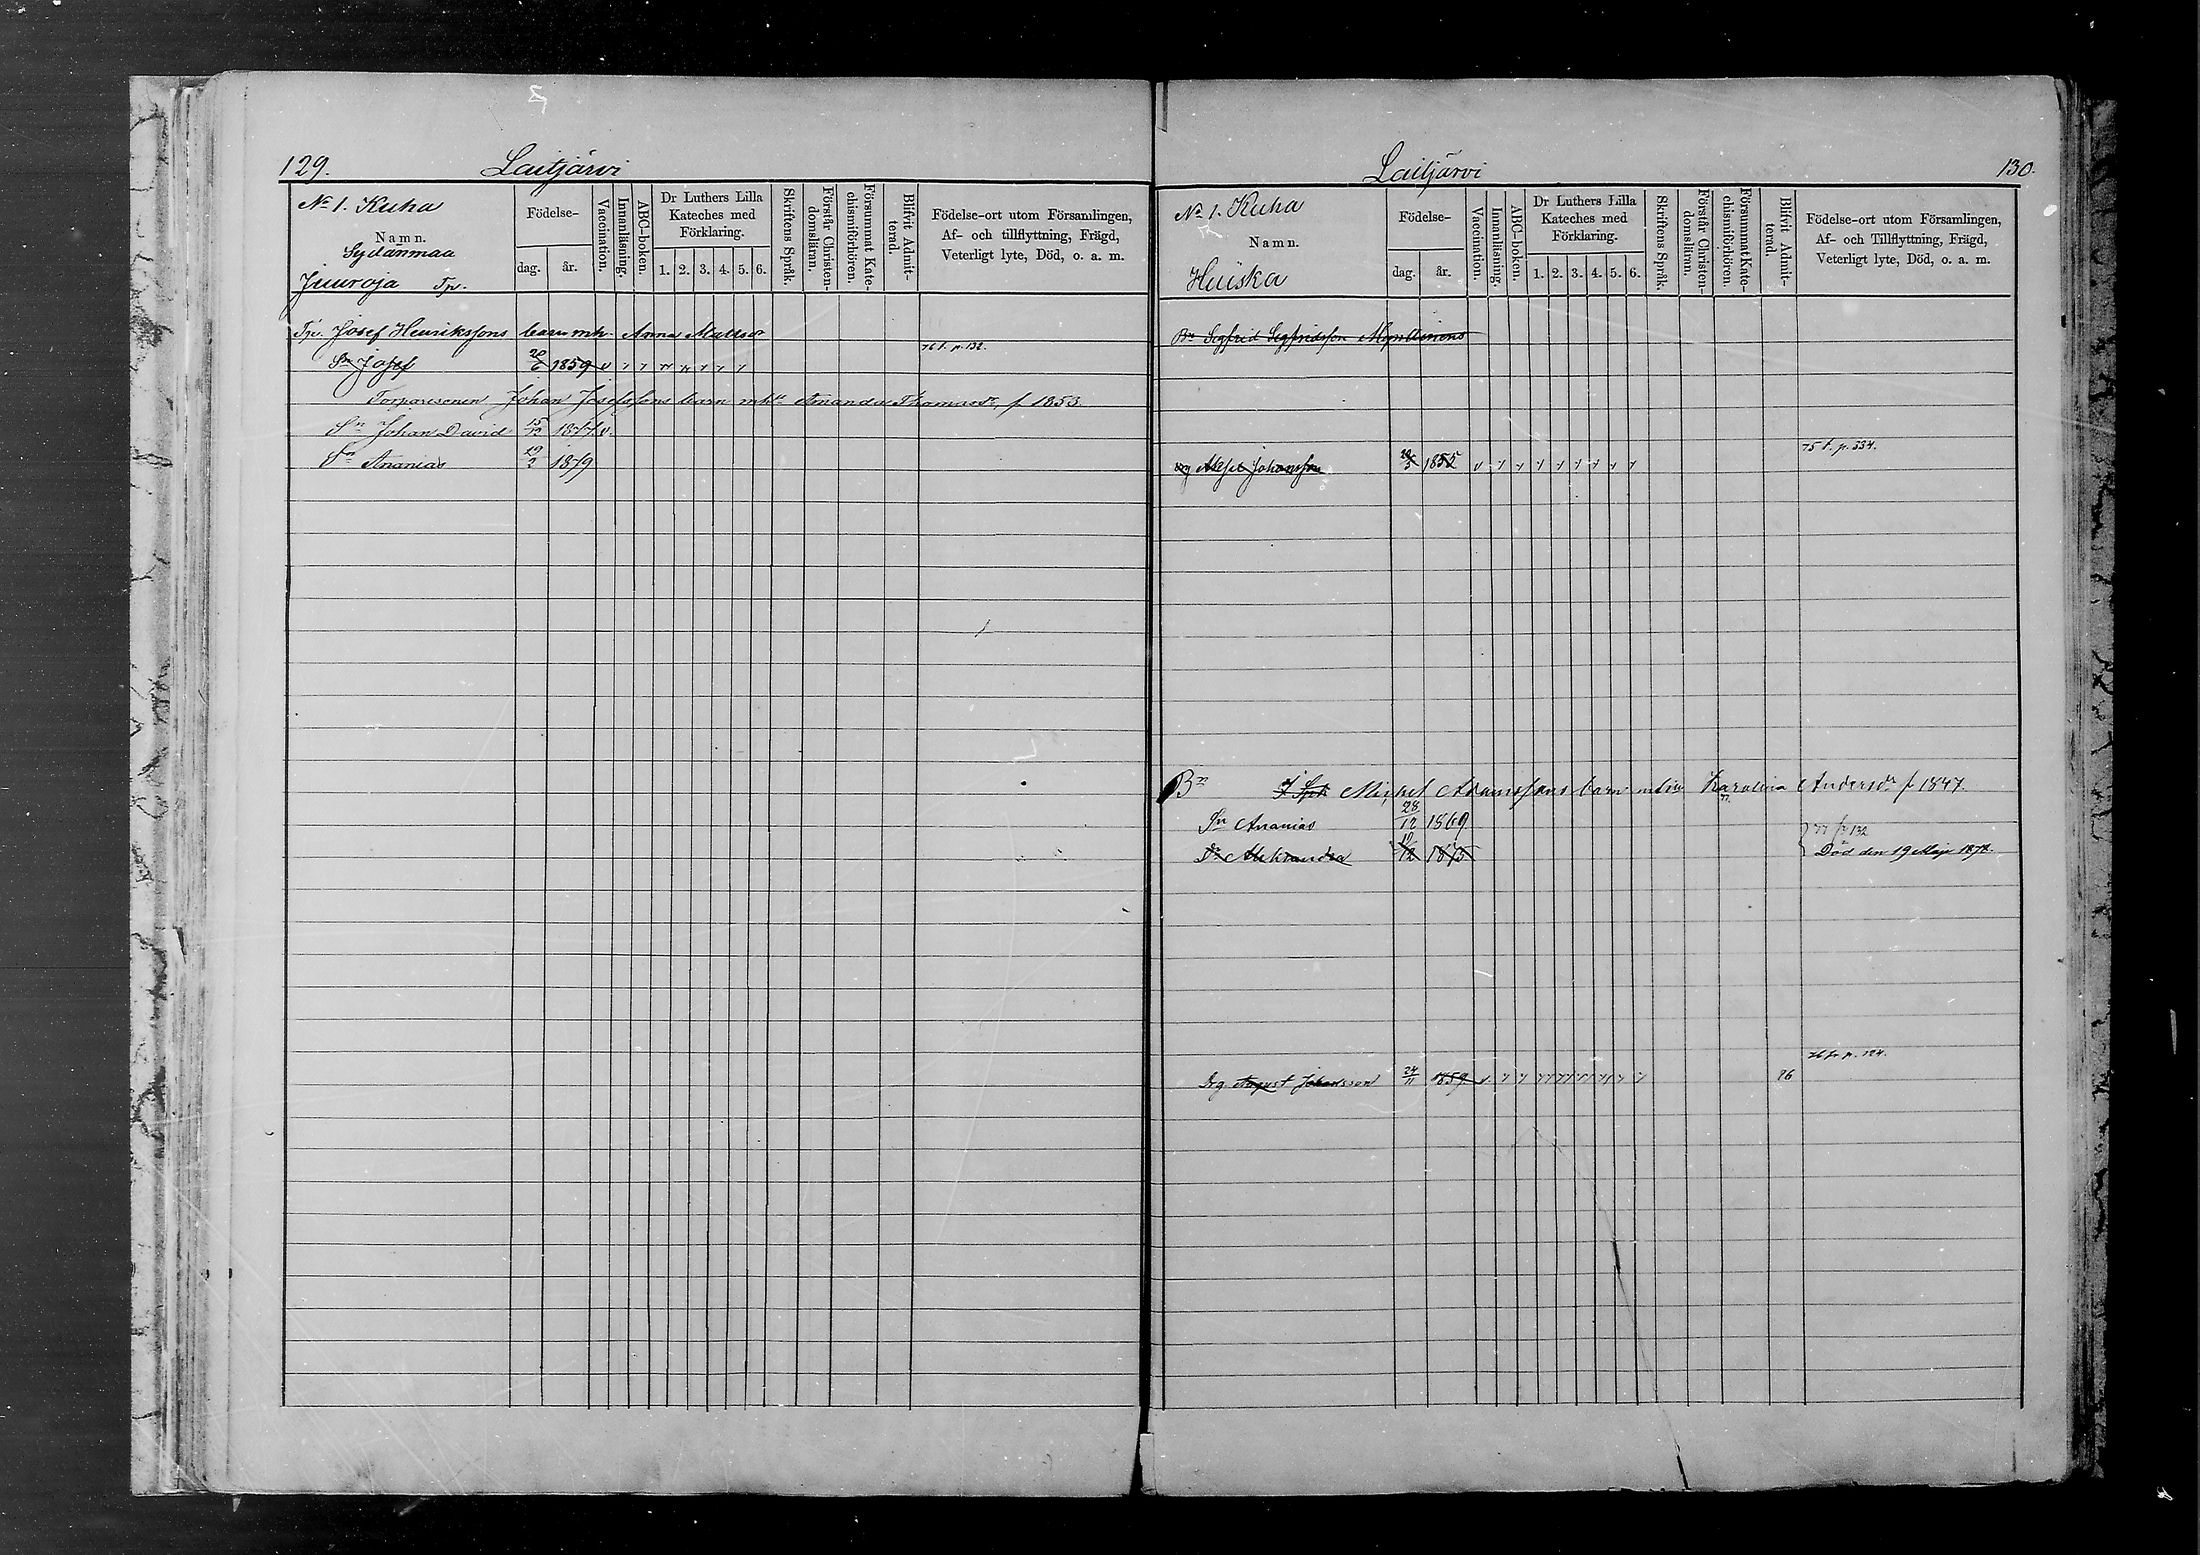 129.
Laitjärvi
No 1. Kuha
Namn.
Sydänmaa
Juuroja Tp.
Födelse-
dag. år.
Vaccination.
Innanläsning.
ABC-boken.
Dr Luthers Lilla
Kateches med
Förklaring.
1. 2. 3. 4. 5. 6.
Skriftens Språk.
Förstår Christen-
domsläran.
Försummat Kate-
chismiförhören.
Blifvit Admit-
terad.
Födelse-ort utom Församlingen,
Af- och tillflyttning, Frägd,
Veterligt lyte, Död, o. a. m.
Tpr. Josef Henrikssons barn mh. Anna Mattsdr
76 t. p. 132.
Sn Josef 20/6 1859 v
Torparesonen Johan Josefssons barn mhu Amanda Thomasdr, f 1853.
Sn Johan David 15/12 1877 v.
Sn Ananias 19/2 1879
Laitjärvi
130.
No 1. Kuha
Namn.
Huiska
Födelse-
dag. år.
Vaccination.
Innanläsning.
ABC-boken.
Dr Luthers Lilla
Kateches med
Förklaring.
1. 2. 3. 4. 5. 6.
Skriftens Språk.
Förstår Christen-
domsläran.
Försummat Kate-
chismiförhören.
Blifvit Admit-
terad.
Födelse-ort utom Församlingen,
Af- och Tillflyttning, Frägd,
Veterligt lyte, Död, o. a. m.
Bn Sigfrid Sigfridsson
75 t. p. 534.
Johansson 1855 v
Bn Mickel Adamssons barn Karolina Andersdr f 1847.
Sn Ananias 28/12 1869
77 p 132
Dr Aleksandra 10/12 1875 Död den 19 Maji 1878.
76 p. 124.
Drg August Johansson 24/11 1859 v. 76